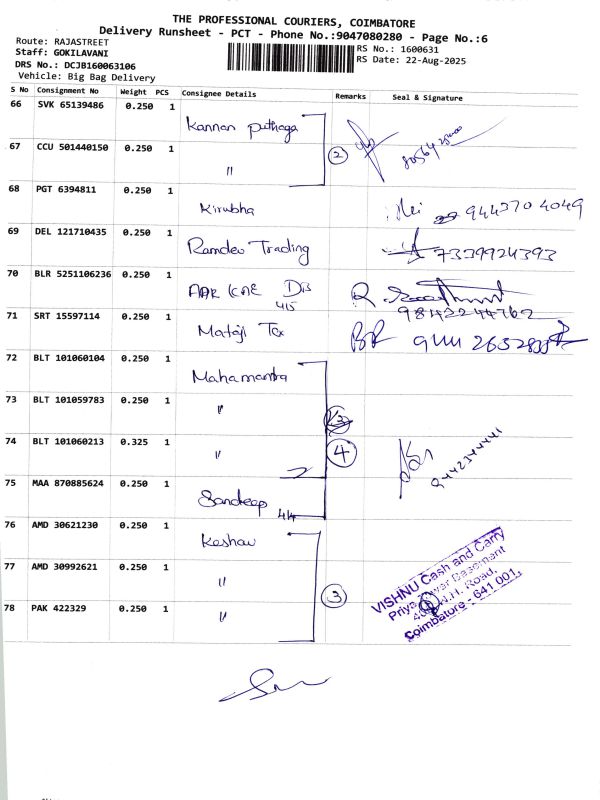 THE PROFESSIONAL COURIERS, COIMBATORE
Delivery Runsheet - PCT - Phone No.:9047080280 - Page No.:6
Route: RAJASTREET
Staff: GOKILAVANI
DRS No.: DCJB160063106
Vehicle: Big Bag Delivery
RS No.: 1600631
RS Date: 22-Aug-2025
S No Consignment No Weight PCS Consignee Details Remarks Seal & Signature
66 SVK 65139486 0.250 1
Kannan puthaga
67 CCU 501440150 0.250 1
" 2
68 PGT 6394811 0.250 1
Kirubha 9443704049
69 DEL 121710435 0.250 1
Ramdev Trading 7339924393
70 BLR 5251106236 0.250 1
415
9842244762
71 SRT 15597114 0.250 1
Mataji Tex
72 BLT 101060104 0.250 1
Mahamantra
73 BLT 101059783 0.250 1
"
74 BLT 101060213 0.325 1
" 4 9442344441
75 MAA 870885624 0.250 1
Sandeep 414
76 AMD 30621230 0.250 1
Keshav
77 AMD 30992621 0.250 1
" 3
78 PAK 422329 0.250 1
"
VISHNU Cash and Carry
Priya Tower Basement
N.H. Road,
Coimbatore - 641 001.